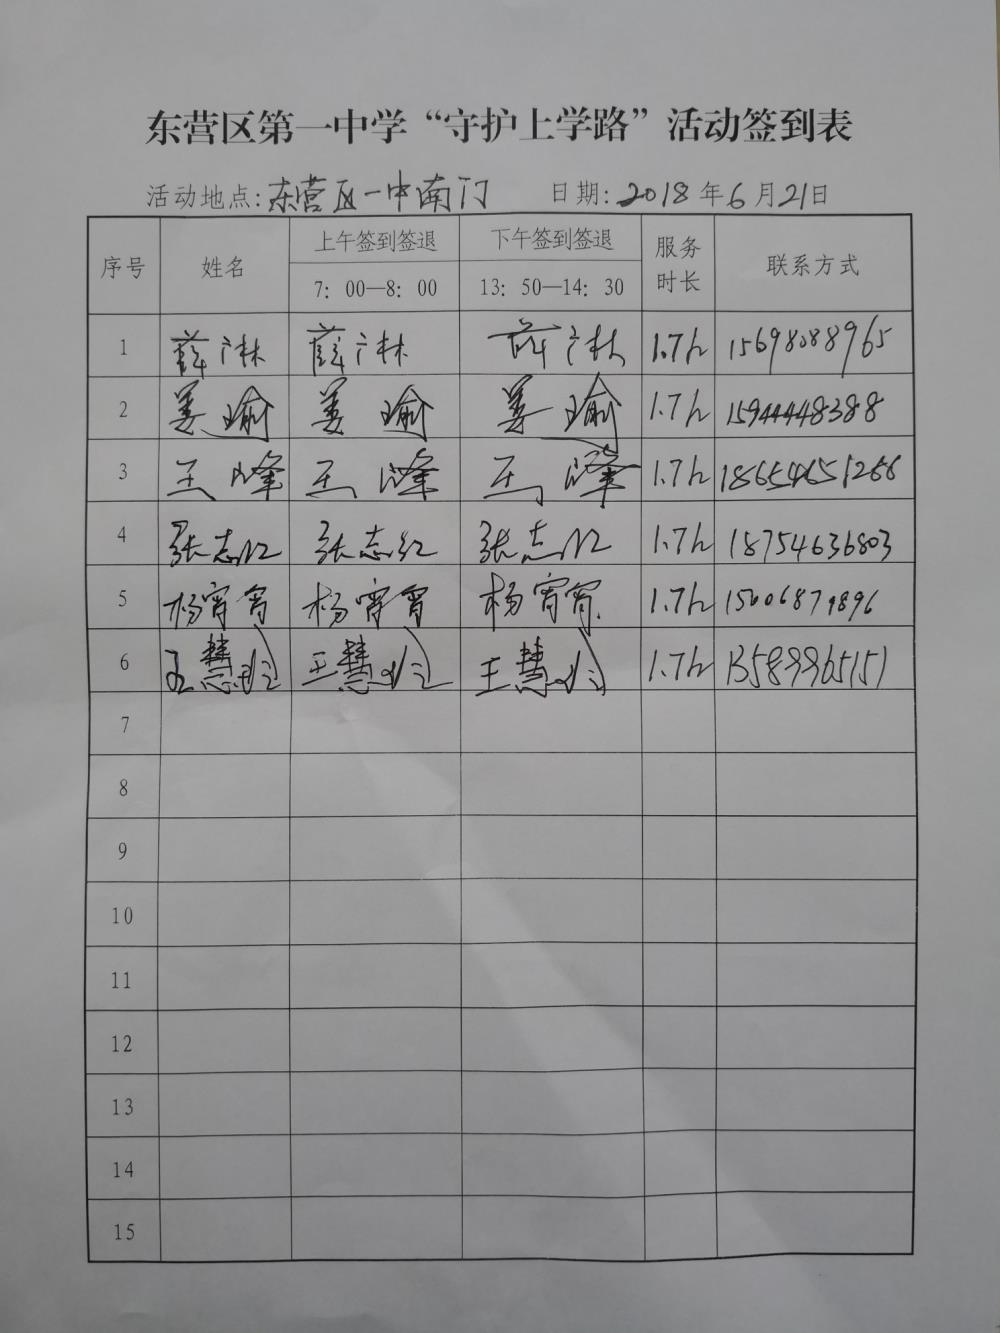 东营区第一中学“守护上学路”活动签到表
活动地点:东营区一中南门 日期:2018年6月21日
序号 姓名 上午签到签退 下午签到签退 服务时长 联系方式
7:00—8:00 13:50—14:30
1 薛广林 薛广林 薛广林 1.7h 15698088965
2 姜瑜 姜瑜 姜瑜 1.7h 15944448388
3 王峰 王峰 王峰 1.7h 18654651266
4 张志红 张志红 张志红 1.7h 18754636803
5 杨宵宵 杨宵宵 杨宵宵 1.7h 15006879896
6 王慧 王慧 王慧 1.7h 13589965151
7
8
9
10
11
12
13
14
15